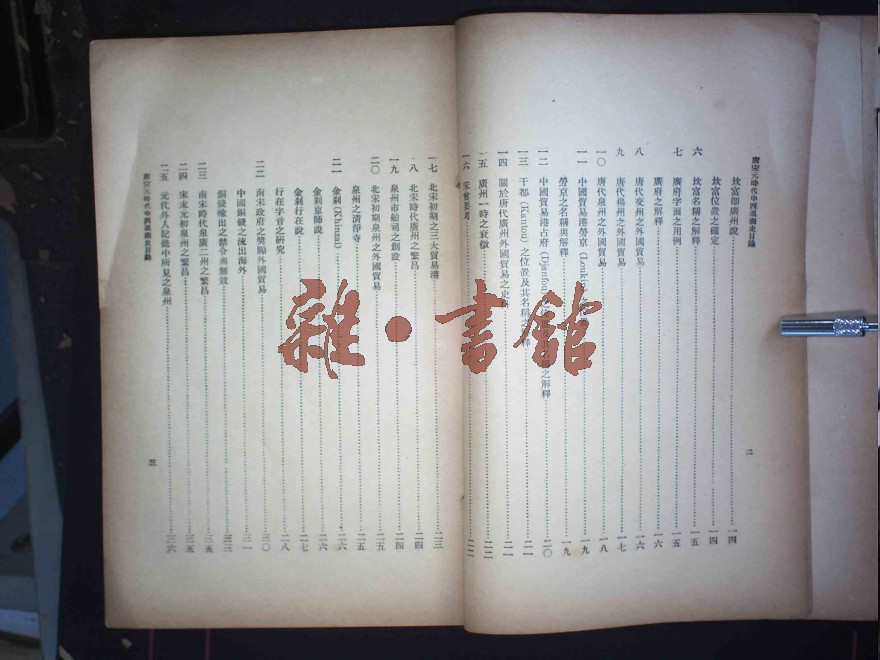 唐宋元時代中西通商史目錄
坎富卽廣州說 一四
坎富位置之確定 一四
六 坎富名稱之解釋 一五
七 廣府字面之用例 一五
廣府之解釋 一六
八 唐代交州之外國貿易 一六
九 唐代揚州之外國貿易 一七
一〇 唐代泉州之外國貿易 一八
一一 中國貿易港勞京 (Loukin) 一九
勞京之名稱與解釋 一九
一二 中國貿易港占府 (Djanfou) 之解釋 二〇
一三 干都 (Kantou) 之位置及其名稱之解釋 二一
一四 關於唐代廣州外國貿易之史 二一
一五 廣州一時之衰微 二二
一六 宋 二二
二
一七 北宋初期之三大貿易港 二三
一八 北宋時代廣州之繁昌 二四
一九 泉州市舶司之創設 二四
二〇 北宋初期泉州之外國貿易 二五
泉州之清淨寺 二五
二一 金剌 (Khinzai) 二六
金剌京師說 二六
金剌行在說 二七
行在字音之研究 二八
二二 南宋政府之獎勵外國貿易 三〇
中國銅錢之流出海外 三一
銅錢輸出之禁令與無效 三三
二三 南宋時代泉廣二州之繁昌 三五
二四 宋末元初泉州之繁昌 三五
二五 元代外人記錄中所見之泉州 三六
唐宋元時代中西通商史目錄
三
雜·書館